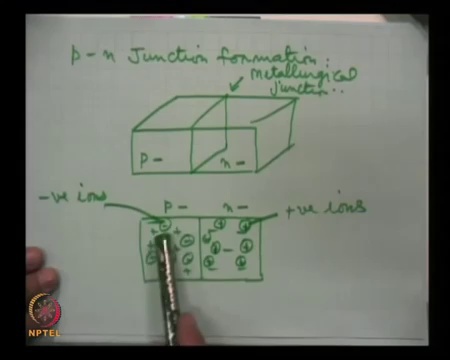 p-n Junction formation:
metallurgical
junction..
p- n-
p- n-
-ve ions
+ve ions
NPTEL